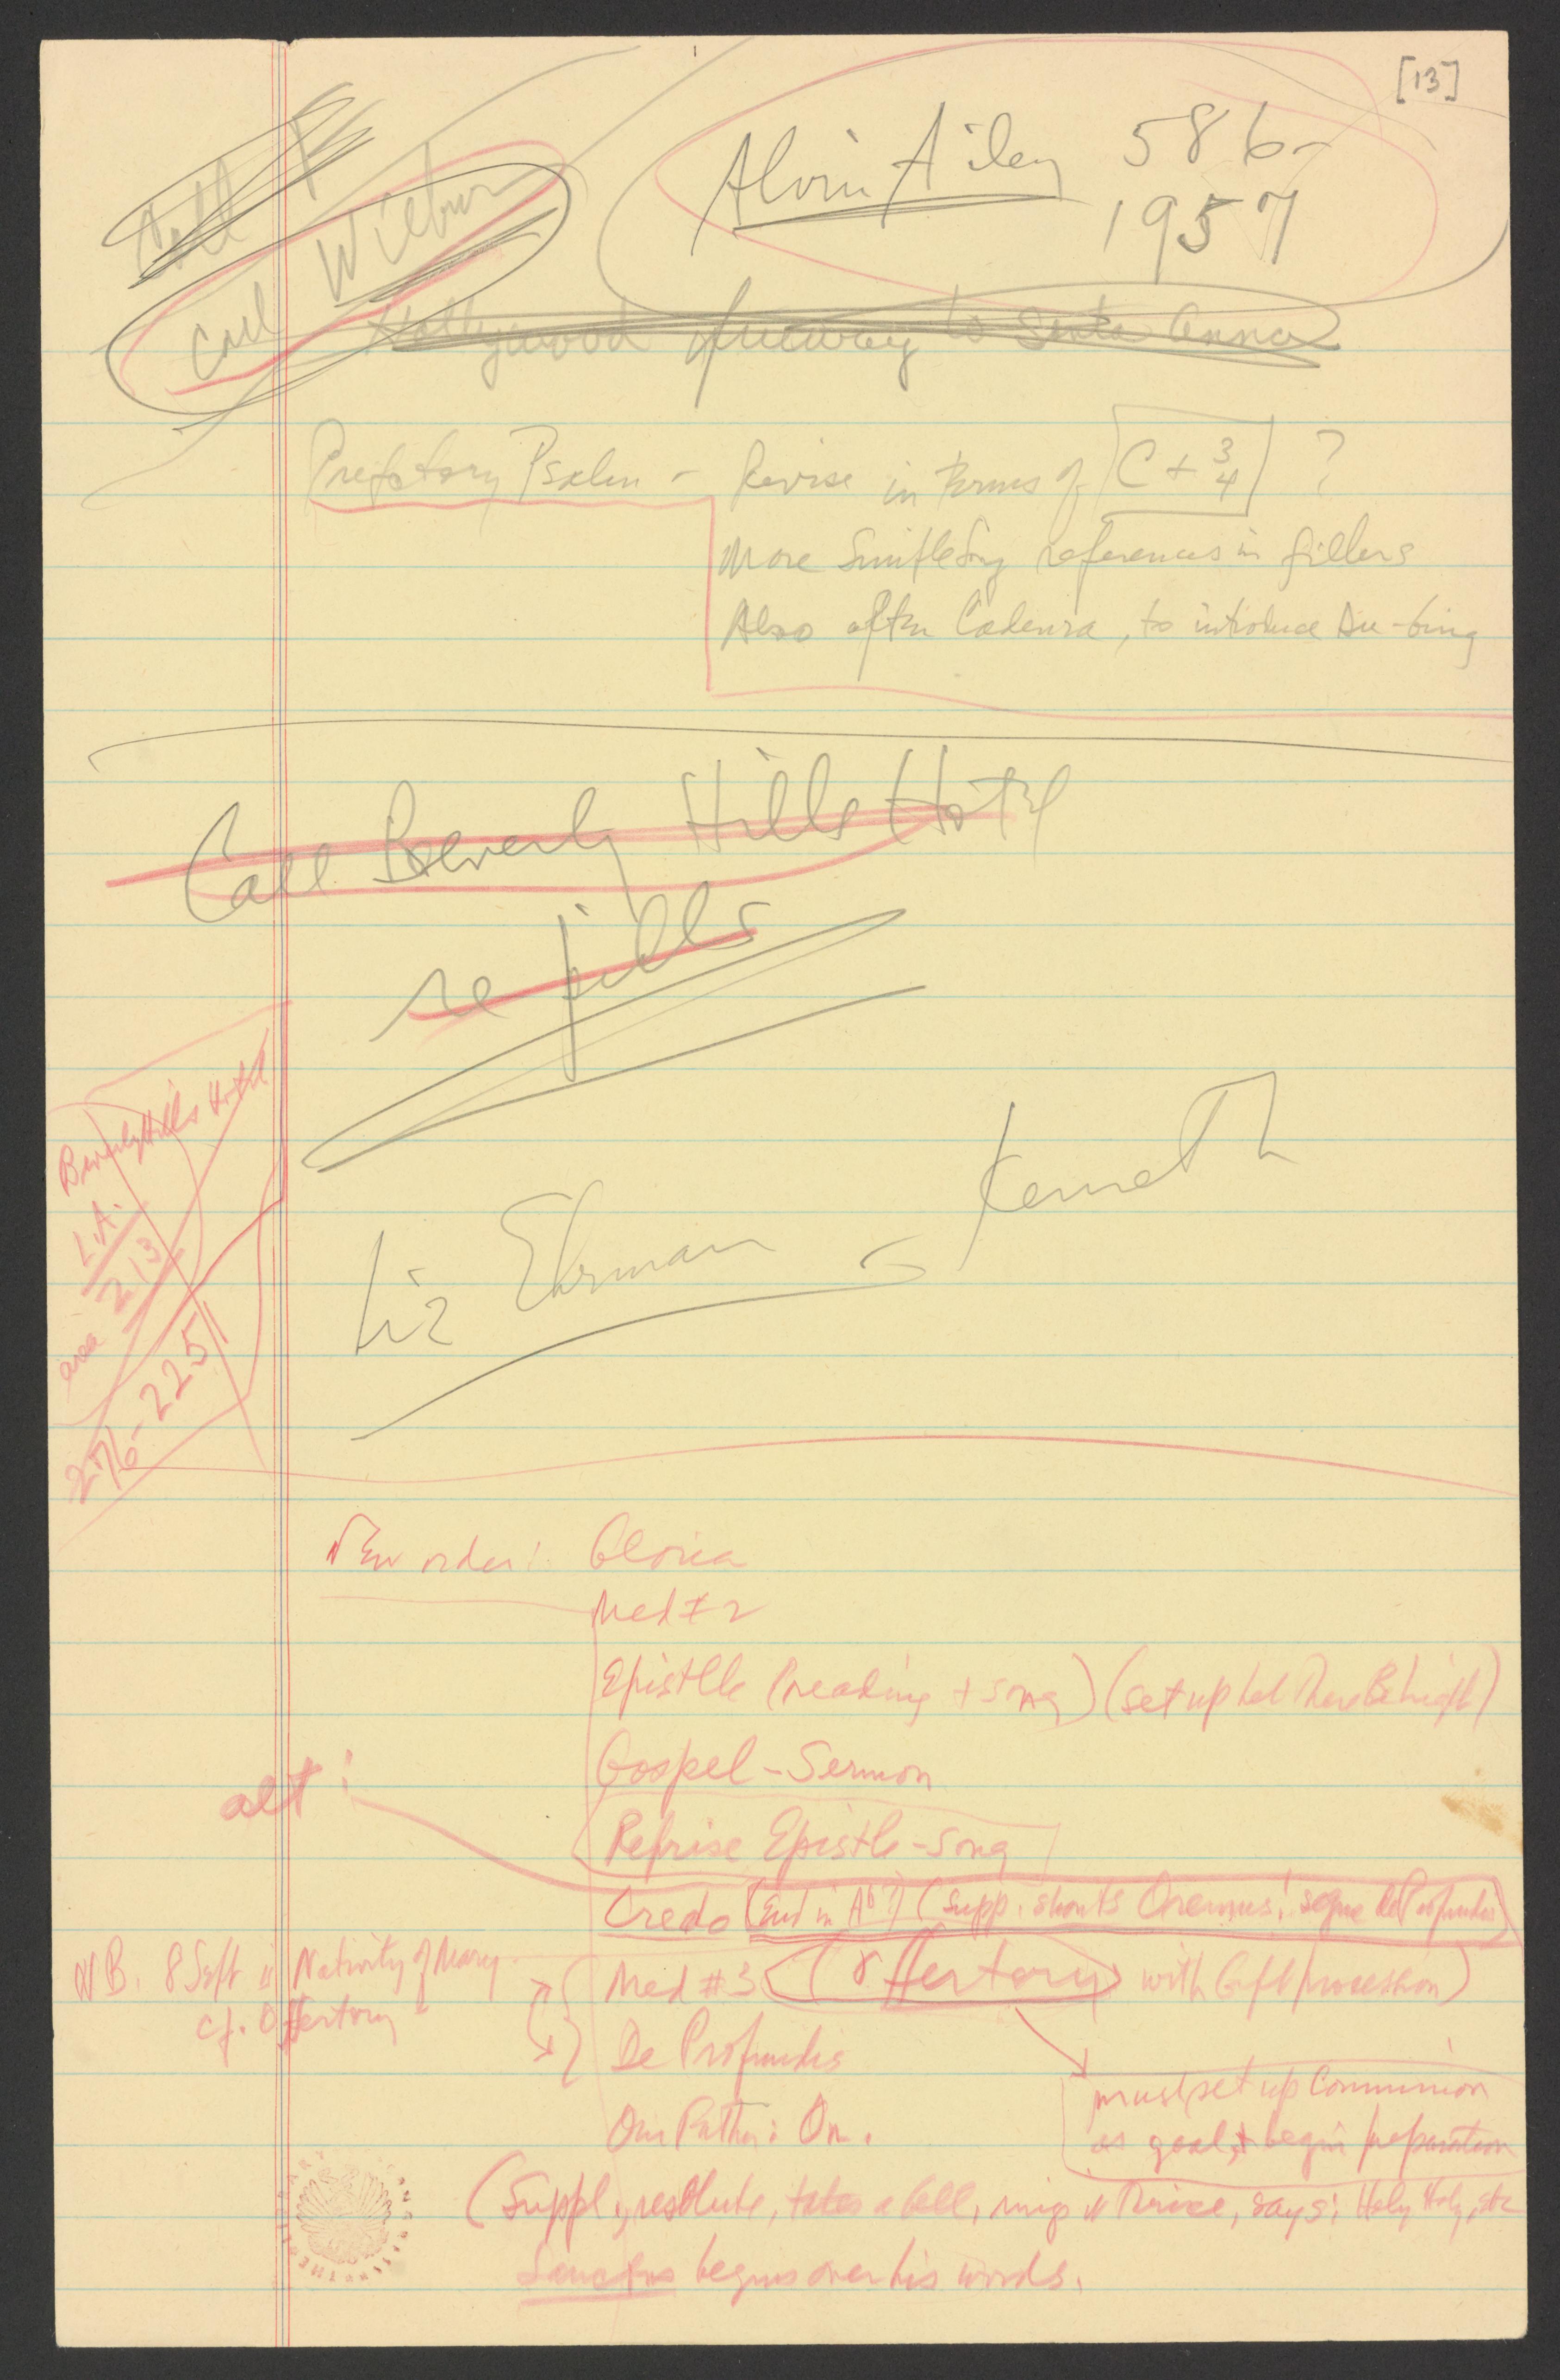 [13]
Call
Call Wilbur
Alvin Ailey 586-
1957
Hollywood freeway to Santa Anna
Prefatory Psalm - Revise in terms of [C + 3/4] ?
More Simple Song references in fillers
Also after Cadenza, to introduce Du-bing
Call Beverly Hills Hotel
re pills
Beverly Hills Hotel
L.A.
area 213
276-2251
Liz Ehrman - Kenneth
New order: Gloria
Med #2
Epistle (reading + song) (set up Let There Be Light)
Gospel - Sermon
Reprise Epistle-Song
alt:
Credo (End in Ab?) (Supp. shouts Oremus! segue De Profundis)
NB. 8 Sept is Nativity of Mary.
cf. Offertory
Med #3 (Offertory with Gift procession)
De Profundis
must set up Communion
as goal, & begin preparation
Our Father: On.
(Suppl., resolute, takes a bell, rings it thrice, says: Holy, Holy, etc
Sanctus begins over his words.